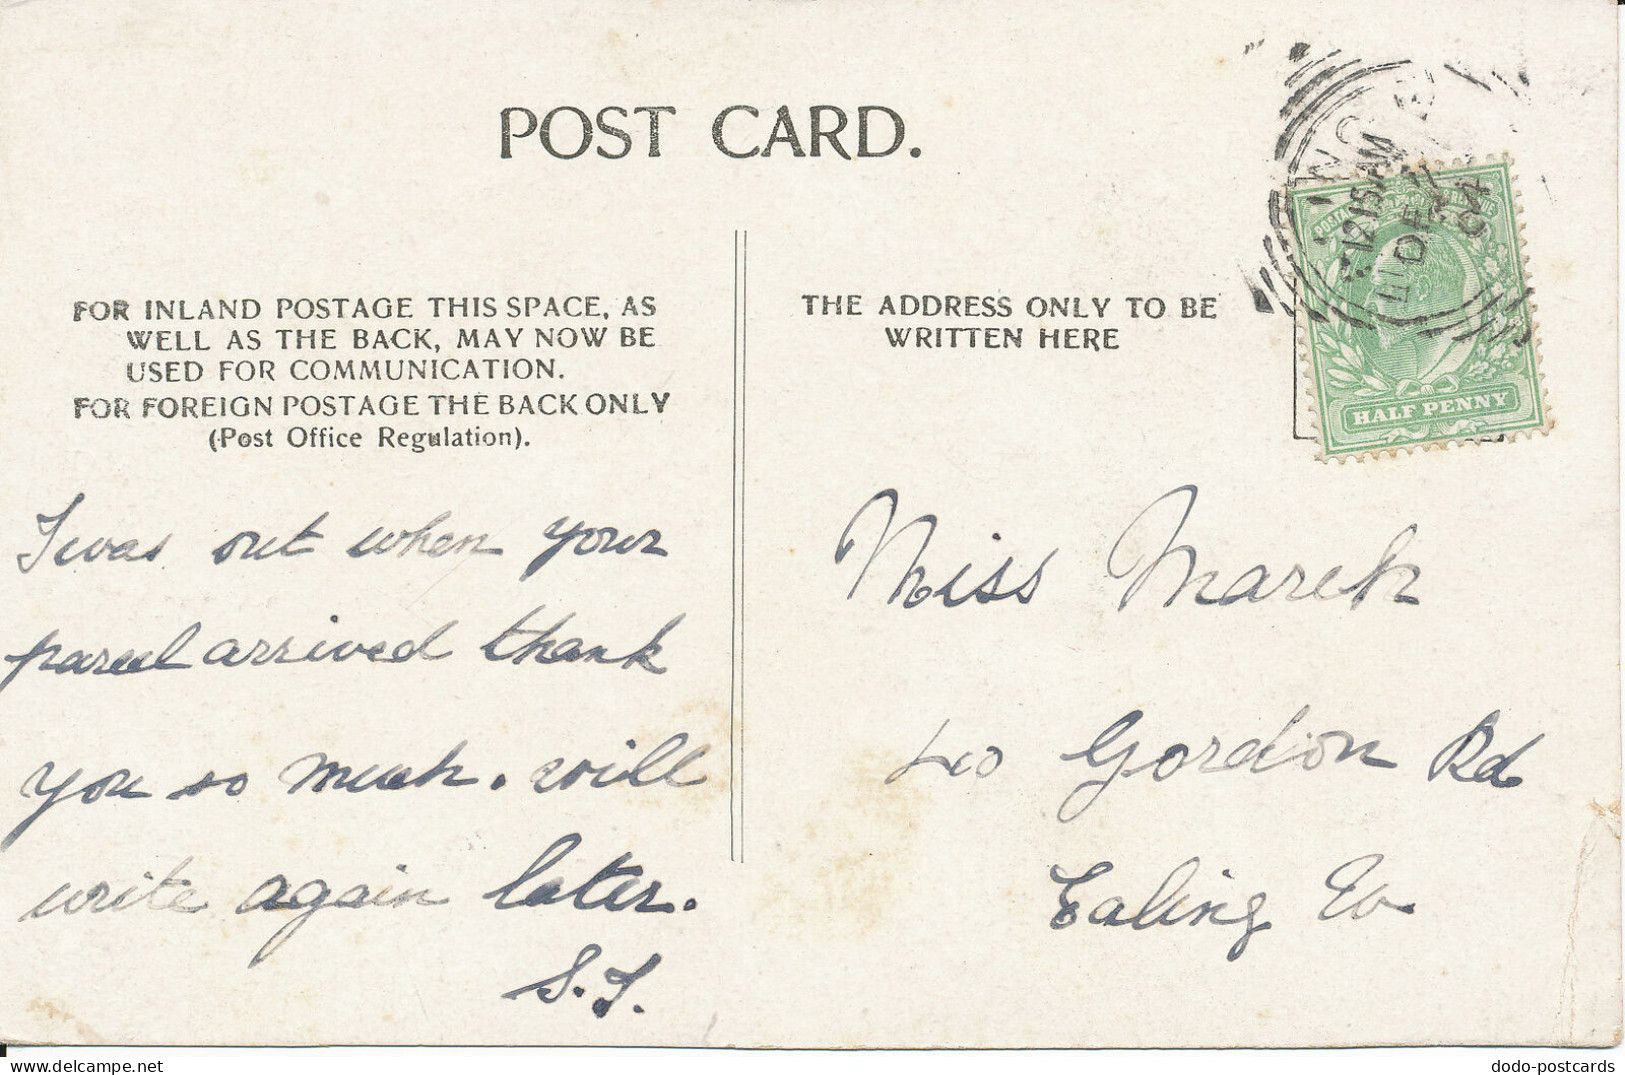 POST CARD.
FOR INLAND POSTAGE THIS SPACE, AS
WELL AS THE BACK, MAY NOW BE
USED FOR COMMUNICATION.
FOR FOREIGN POSTAGE THE BACK ONLY
(Post Office Regulation).
I was out when your
parcel arrived thank
you so much. will
write again later.
S.T.
THE ADDRESS ONLY TO BE
WRITTEN HERE
12 15 AM
DE
04
HALF PENNY
Miss March
40 Gordon Rd
Ealing W
dodo-postcards